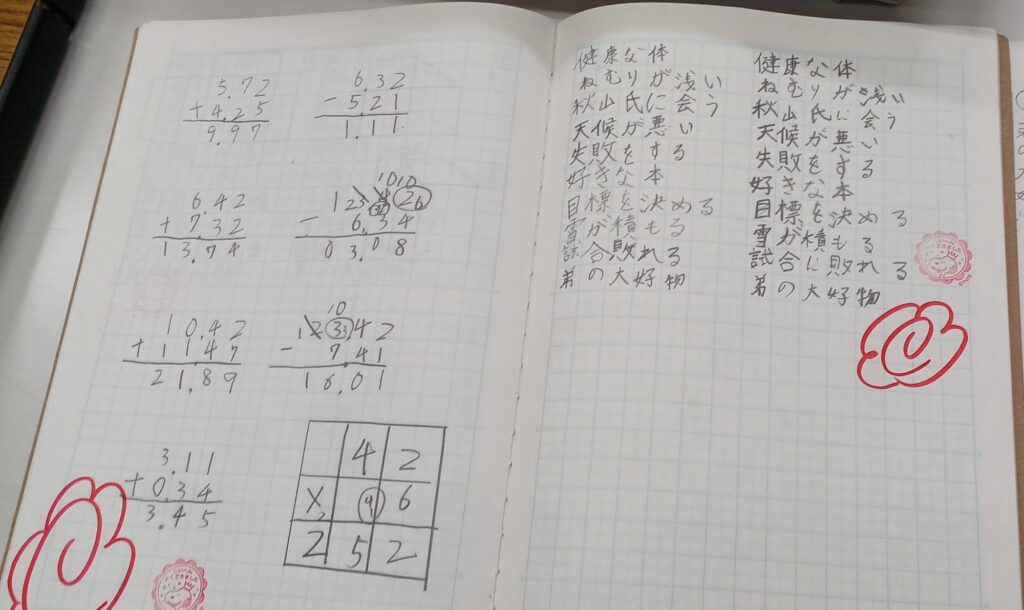 5.72
+4.25
9.97
6.32
-5.21
1.11
6.42
+7.32
13.74
- 6.34
03.08
10.42
+11.47
21.89
10
- 7.41
16.01
3.11
+0.34
3.45
42
× 6
252
健康な体
ねむりが浅い
秋山氏に会う
天候が悪い
失敗をする
好きな本
目標を決める
雪が積もる
試合に敗れる
弟の大好物
健康な体
ねむりが浅い
秋山氏に会う
天候が悪い
失敗をする
好きな本
目標を決める
雪が積もる
試合に敗れる
弟の大好物